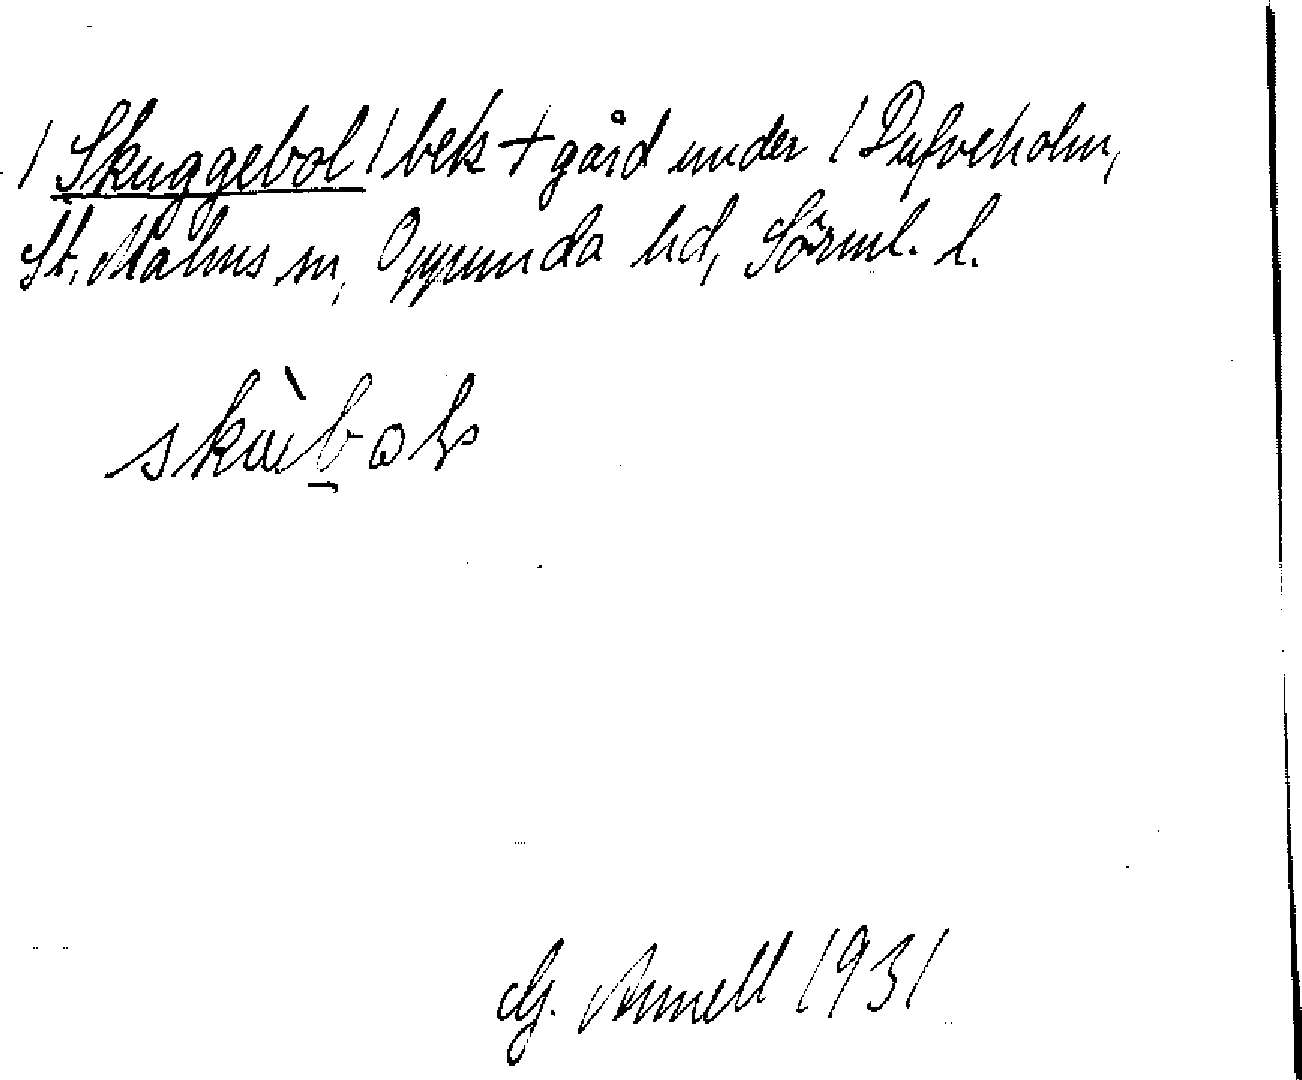 1 Skuggebol 1 bek + gård under 1 Dufveholm,
St. Malms sn, Oppunda hd, Sörml. l.
G. Annell 1931